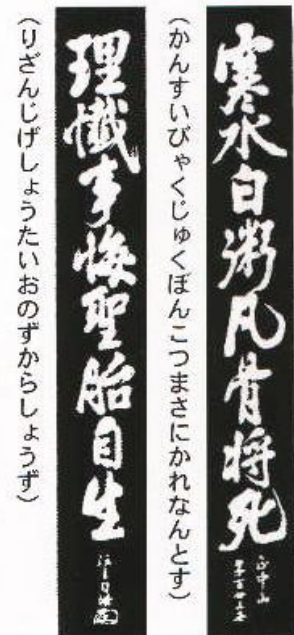 寒水白粥凡骨将死
(かんすいびゃくじゅくぼんこつまさにかれなんとす)
理懺事悔聖胎自生
(りざんじげしょうたいおのずからしょうず)